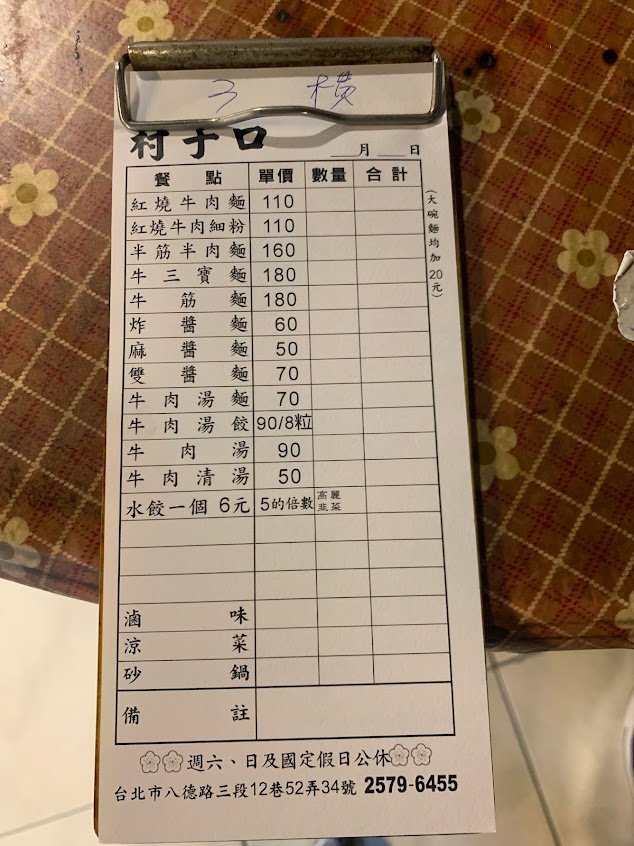 3 橫
村子口
月 日
餐點 單價 數量 合計
紅燒牛肉麵 110
紅燒牛肉細粉 110
半筋半肉麵 160
牛三寶麵 180
牛筋麵 180
炸醬麵 60
麻醬麵 50
雙醬麵 70
牛肉湯麵 70
牛肉湯餃 90/8粒
牛肉湯 90
牛肉清湯 50
水餃一個 6元 5的倍數 高麗 韭菜
滷味
涼菜
砂鍋
備註
(大碗麵均加20元)
週六、日及國定假日公休
台北市八德路三段12巷52弄34號 2579-6455